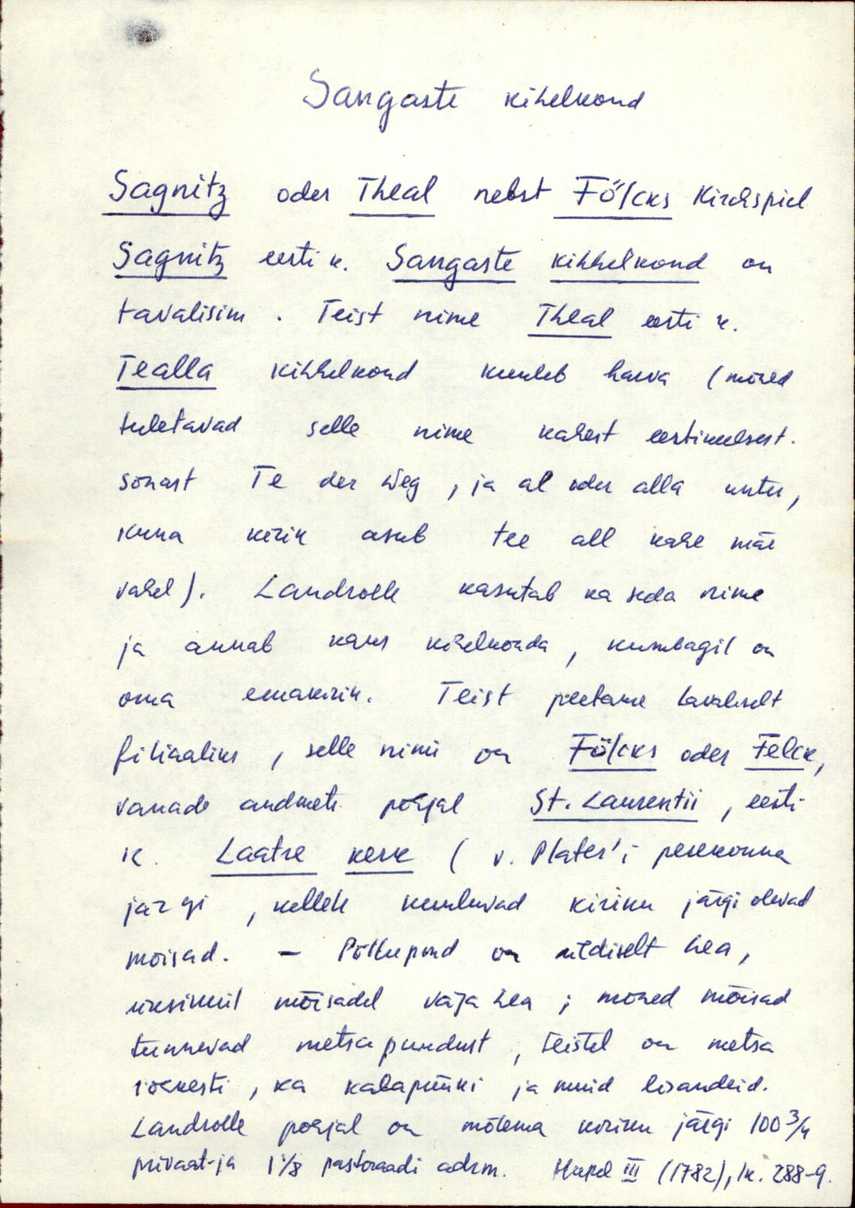 Sangaste kihelkond
Sagnitz oder Theal nebst Fölcks Kirchspiel
Sagnitz eesti k. Sangaste kihhelkond on
tavalisim. Teist nime Theal eesti k.
Tealla kihhelkond kuuleb harva (mõned
tuletavad selle nime kahest eestikeelsest.
sõnast Te der Weg, ja al oder alla unter,
kuna kirik asub tee all kahe mäe
vahel). Landrolle kasutab ka seda nime
ja annab kaks kihelkonda, kumbagil on
oma emakirik. Teist peetakse tavaliselt
filiaaliks, selle nimi on Fölcks oder Felck,
vanade andmete põhjal St. Laurentii, eesti
k. Laatre kerk (v. Plater'i perekonna
järgi, kellele kuuluvad kiriku järgi olevad
mõisad. - Põllupind on üldiselt hea,
üksikuil mõisadel väga hea; mõned mõisad
tunnevad metsapuudust, teistel on metsa
rohkesti, ka kalapüüki ja muid lisandeid.
Landrolle põhjal on mõlema kiriku järgi 100 3/4
privaat- ja 1 1/8 pastoraadi adrm. Hupel III (1782), lk. 288-9.